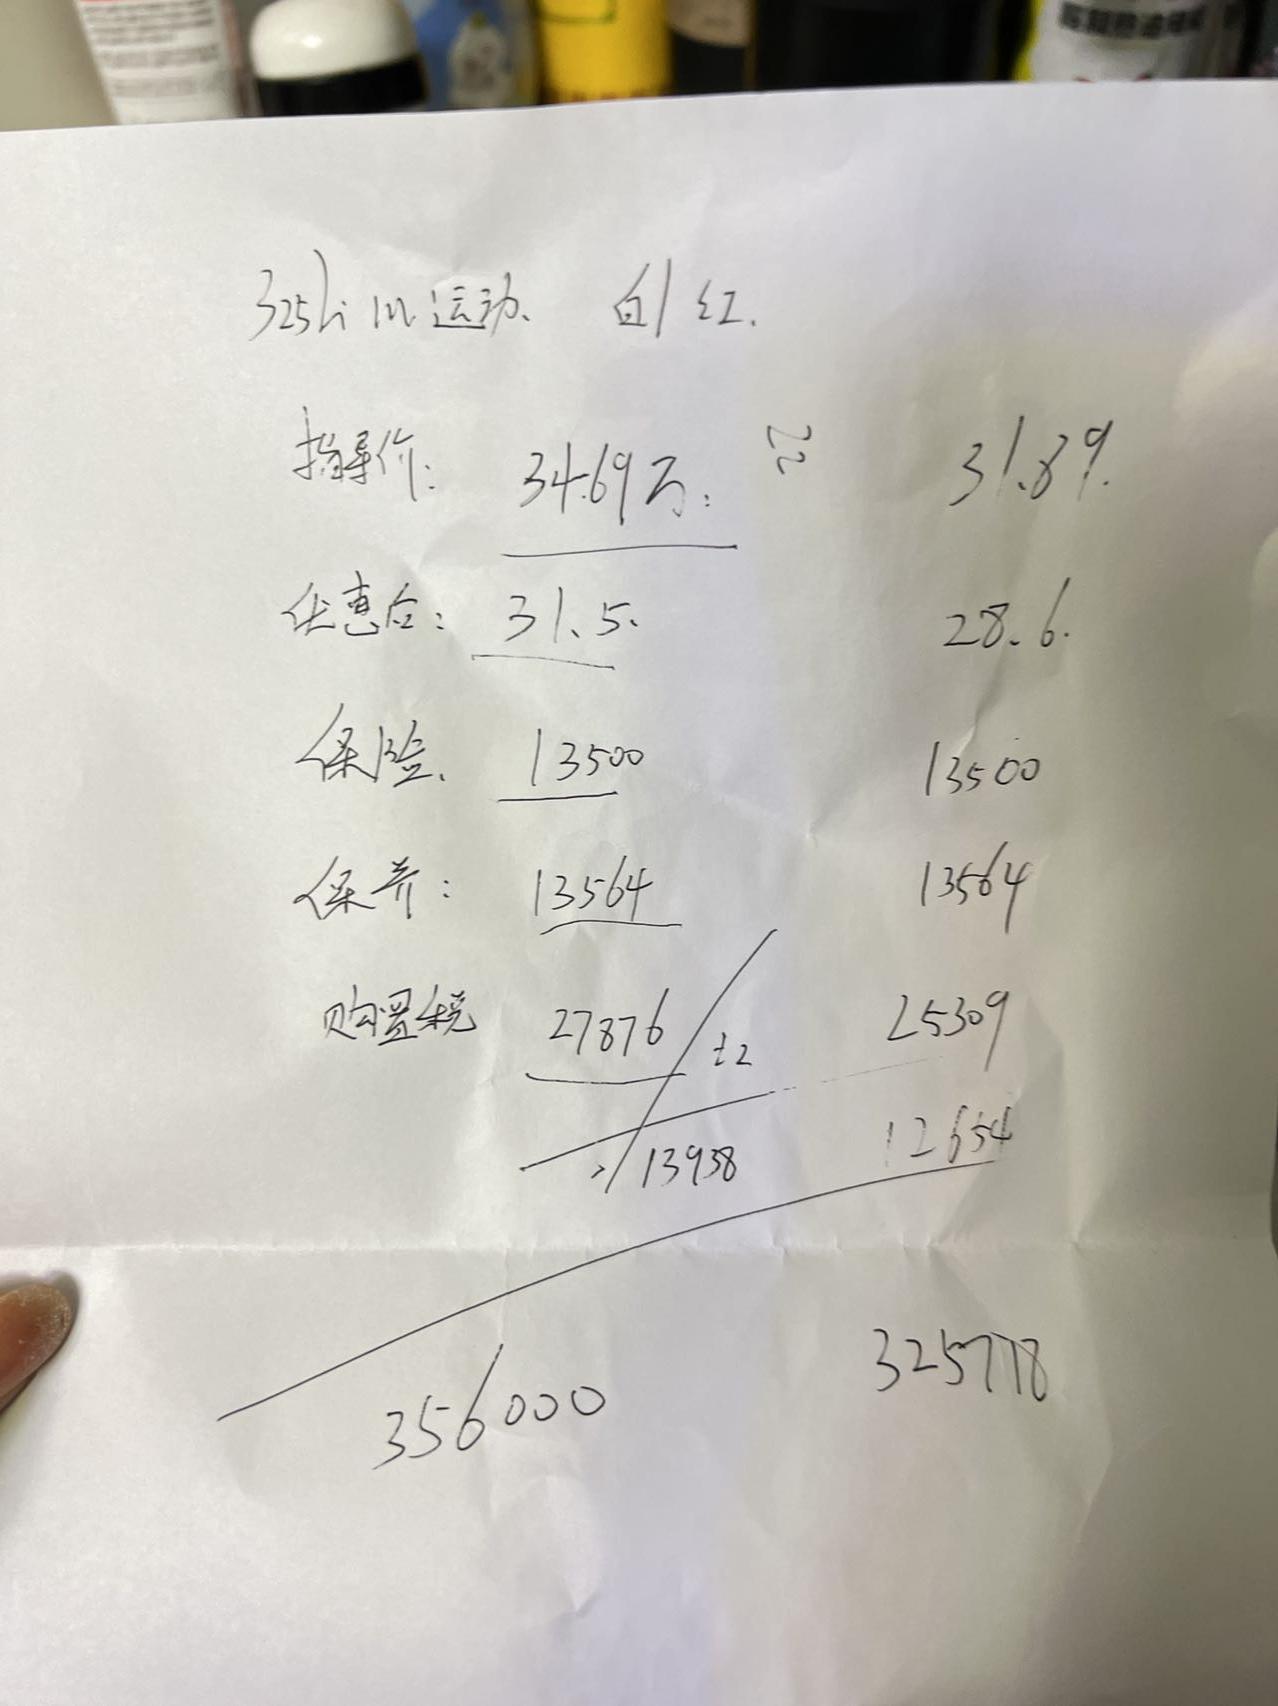 325Li M运动、 白/红.
指导价: 34.69万. 22 31.89.
优惠后: 31.5. 28.6.
保险、 13500 13500
保养: 13564 13564
购置税 27876 ÷2 25309
13938 12654
356000 325718